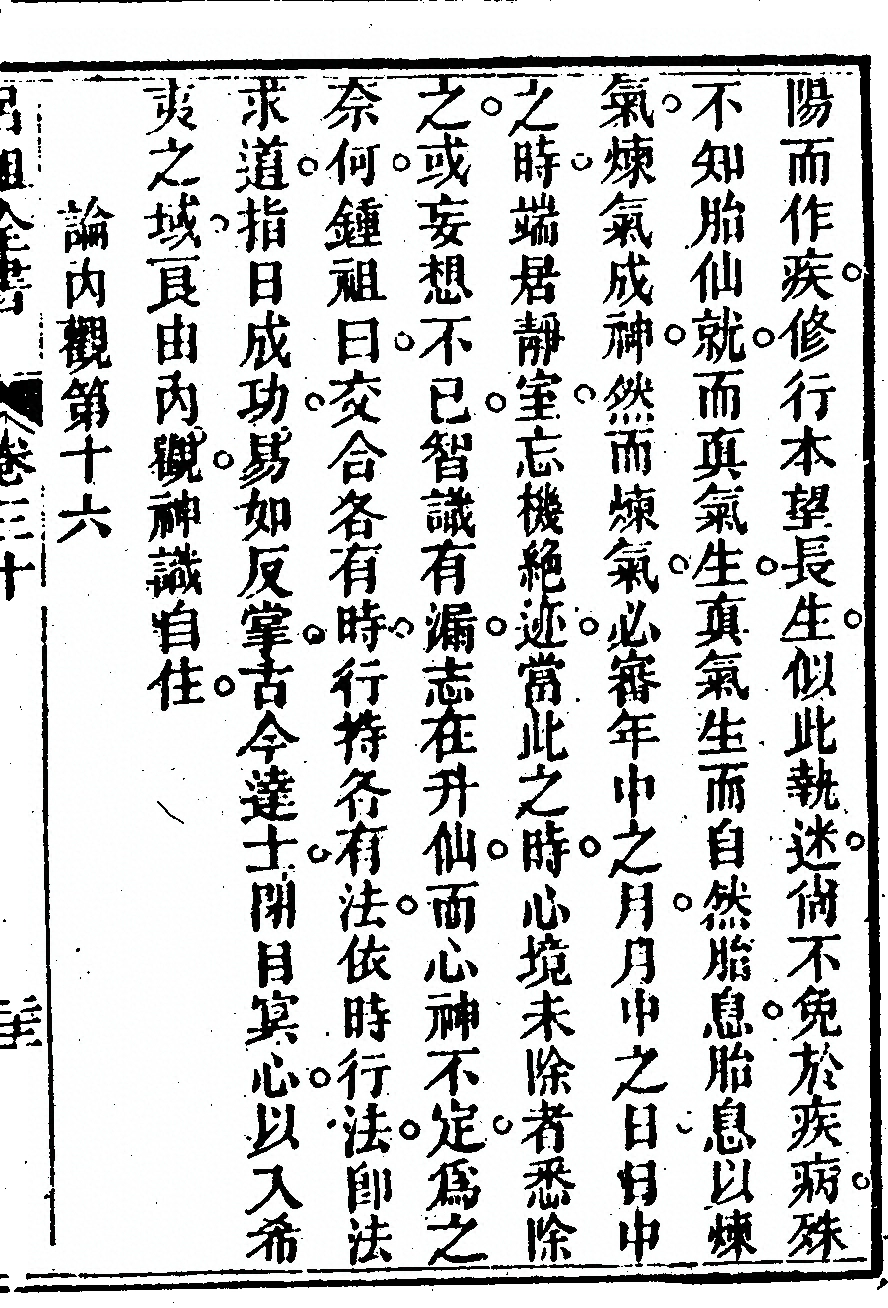 陽而作疾修行本望長生似此執迷尙不免於疾病殊
不知胎仙就而眞氣生眞氣生而自然胎息胎息以煉
氣煉氣成神然而煉氣必審年中之月月中之日日中
之時端居靜室忘機絶迹當此之時心境未除者悉除
之或妄想不已智識有漏志在升仙而心神不定爲之
奈何鍾祖曰交合各有時行持各有法依時行法卽法
求道指日成功易如反掌古今達士閉目冥心以入希
夷之域良由內觀神識自住
論內觀第十六
呂祖全書 卷三十